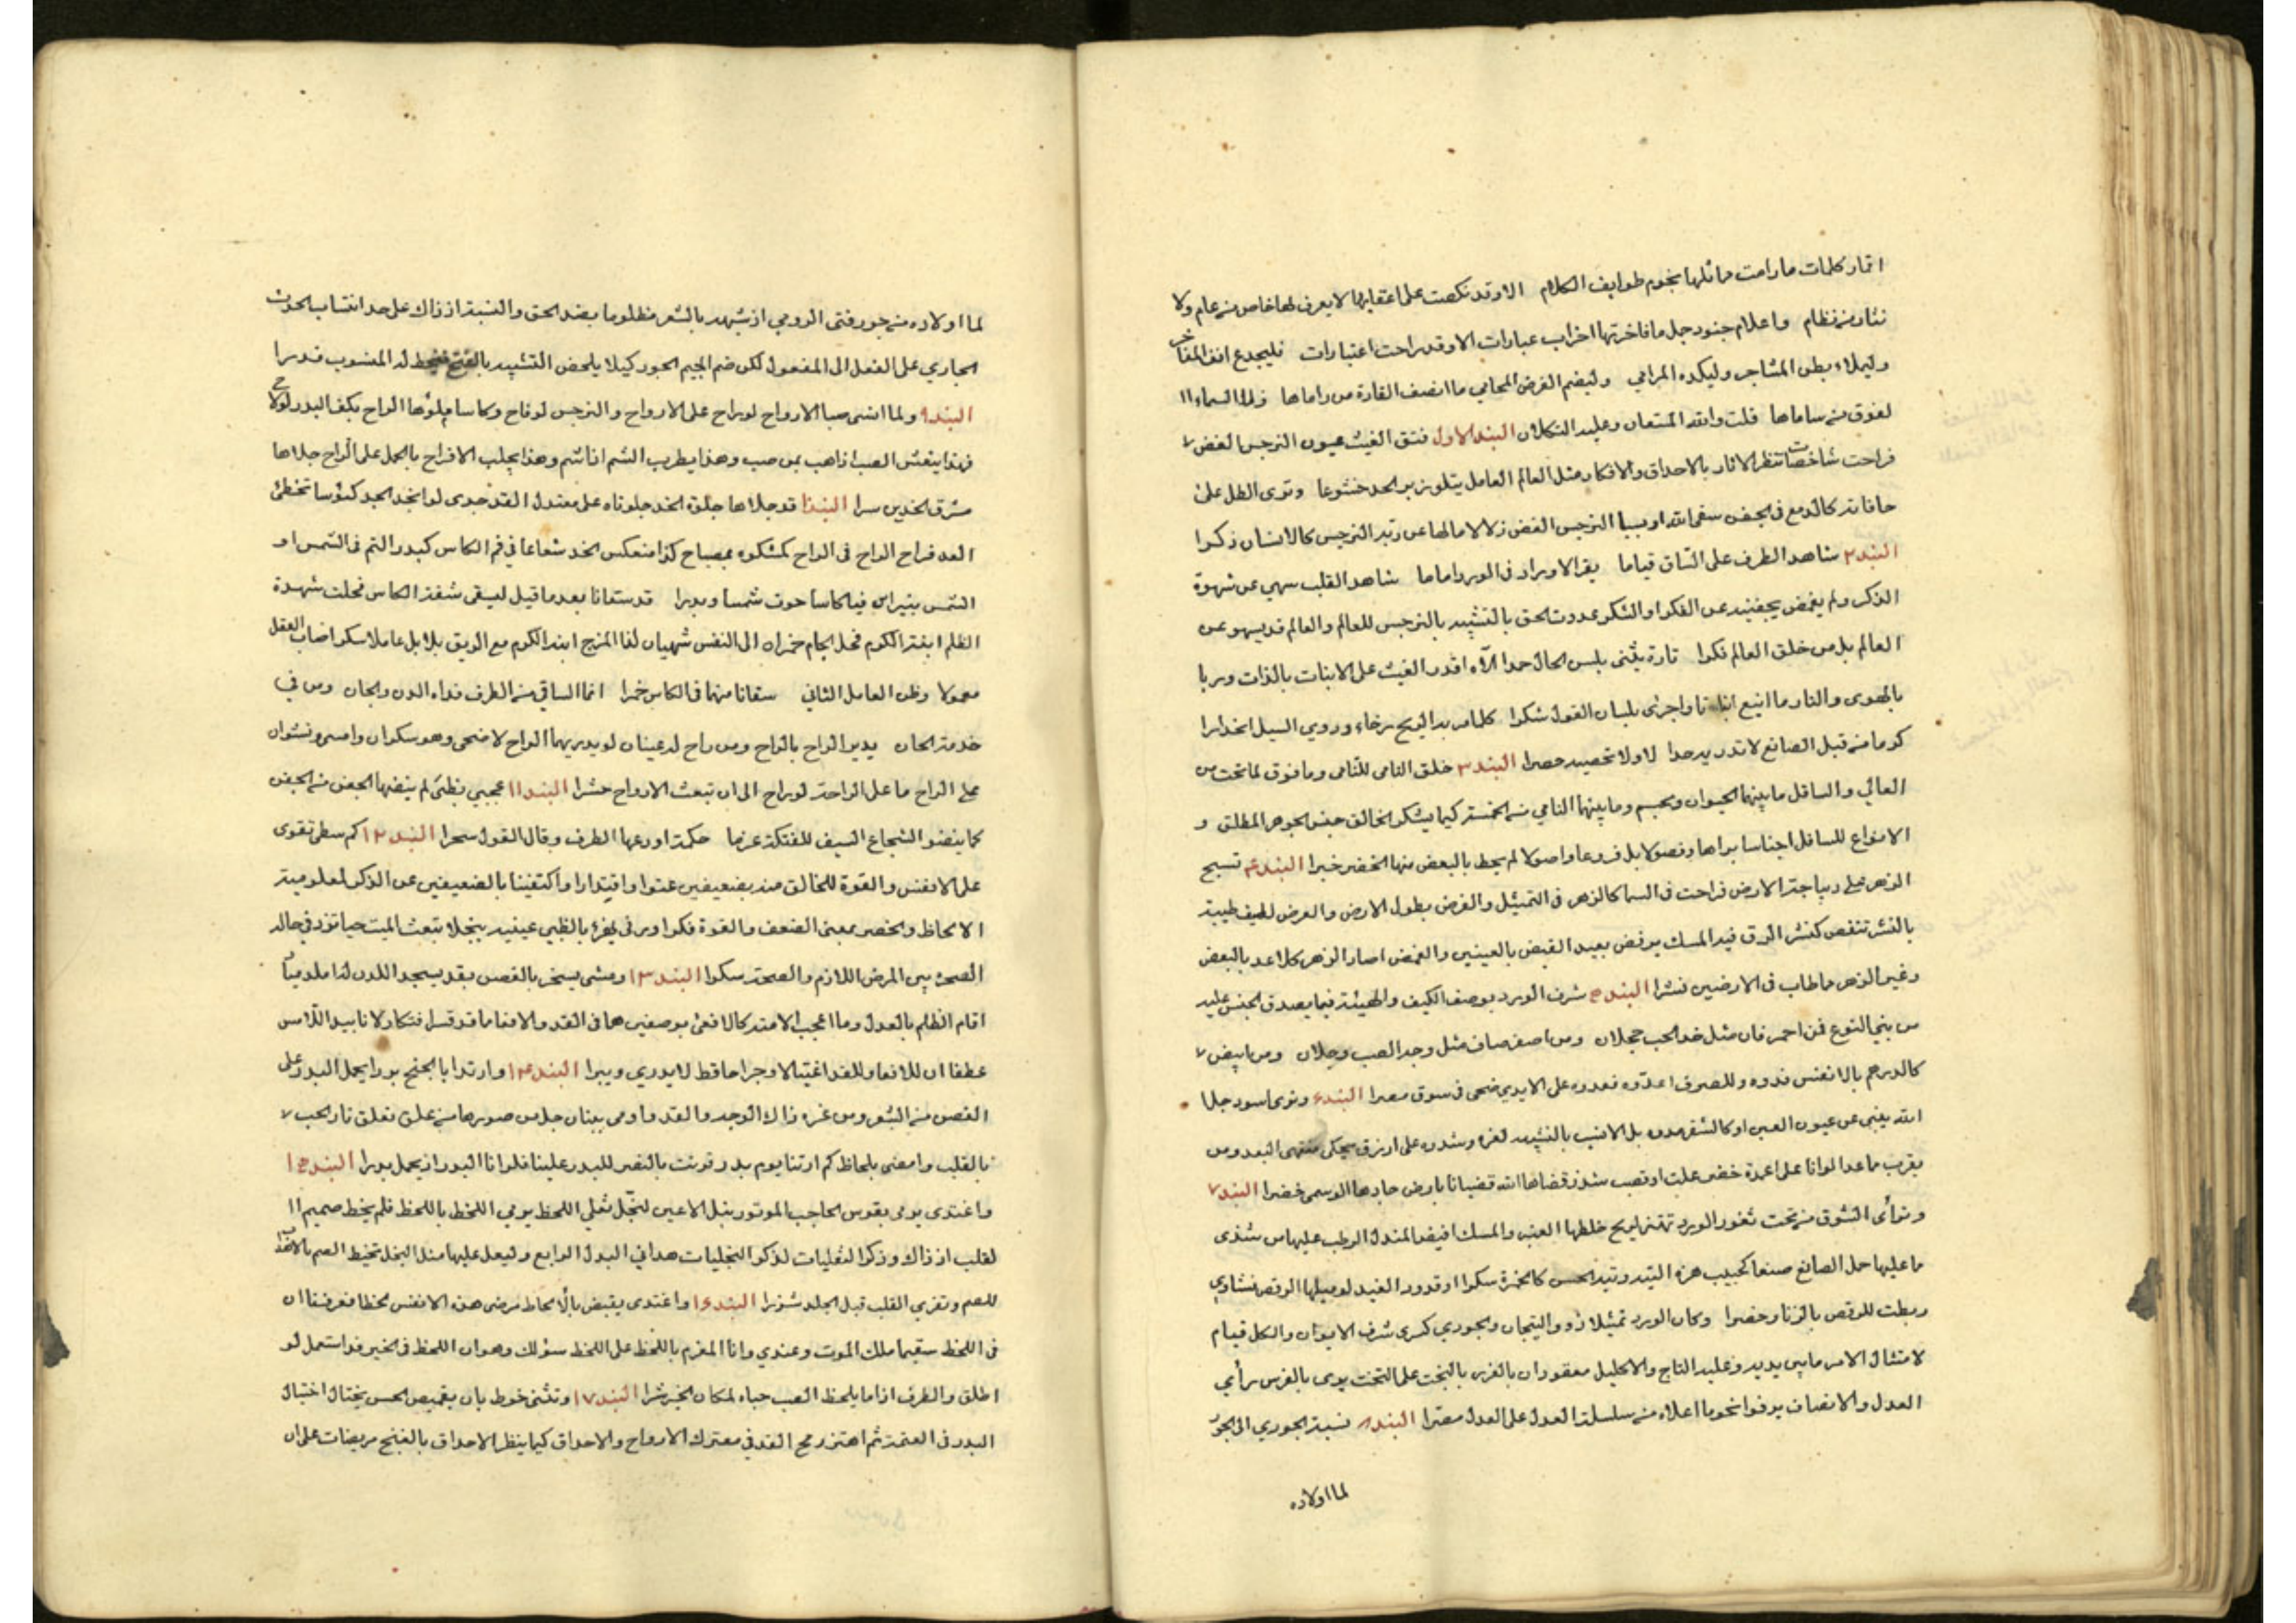 اقمار كلمات ما رامت مماثلها نجوم طوايف الكلام الا وقد نكصت على اعقابها لا يعرف لها خاص من عام ولا
نثار من نظام واعلام جنود جمل ما فاخرتها احزاب عبارات الا وقد راحت اعتبارات فليجدع انف المفاخر
وليملاء بطن المشاجر وليكده المرامي وليضم الغرض المحامي ما انصف القارة من راماها ولا السماء ا
لفوق من ساماها قلت والله المستعان وعليه التكلان البند الاول فتق الغيث عيون النرجس الغض
فراحت شاخصات تنظر الاثار بالاحداق والافكار مثل العالم العامل يتلو زبر الحمد خشوعا وترى الطل على
حافاته كالدمع في الجفن سقى الله اويسا النرجس الغض زلالا ما لها عن ربه النرجس كالانسان ذكرا
البند ٢ شاهد الطرف على الساق قياما يقرا الاوراد في الورد اماما شاهد القلب سهي عن شهوة
الذكر ولم يغمض بجفنيه عن الفكر او الشكر عدوت الحق بالتشبيه بالنرجس للعالم والعالم قد يسهو عن
العالم بل من خلق العالم فكرا تارة يثنى بلبس الحال حمدا لاله اقدر الغيث على الانبات بالذات وربا
بالهوى والنار ما اينع واجرى بلسان القول شكرا كلما مر به الريح رخاء وروي السيل انحدارا
كم ما من قبل الصانع لا تدريه حدا لا ولا تحصيه حصرا البند ٣ خلق النامى للنامى وما فوق لما تحت من
العالي والسافل ما بينهما الحيوان وبجسم وما بينهما النامي من الخمسة كيما يشكر الخالق جنس الجوهر المطلق و
الانواع للسافل اجناسا براها وفصولا بل فروعا واصولا لم يحط بالبعض منها الخضر خبرا البند ٤ تسبح
الزهر على ديباجة الارض فراحت في السما كالزهر في التمثيل والغرض بطول الارض والعرض لطيف طيبة
بالنشر تنقص كنشر الرق فيه المسك يرفض بعيد القبض بالعينين والغمض اصار الزهر كلا عد بالبعض
وغير الزهر ما طاب في الارضين نشرا البند ٥ شرف الورد بوصف الكيف والهيئة فيما يصدق الجنس عليه
من بني النوع فمن احمر قان مثل خد الحب خجلان ومن اصفر صاف مثل وجه الصب وجلان ومن ابيض
كالدرهم بالانفس فدوه وللصرف اعدوه فعدوه على الايدي ضحى في سوق مصرا البند ٦ وترى اسود جلا
الله يغني عن عيون العين او كالشعر هدوه بل الانسب بالتشبيه لغره وشدوه على ازرق يحكى منتهى البعد ومن
يقرب ما عدا لوانا على اعمدة خضر علت او قصب شذ رقضاها الله قضبانا بارض جادها الوسمى خضرا البند ٧
وترائى الشوق من تحت ثغور الورد تهتز لريح خلطها العنبر والمسك افيض المندل الرطب عليها من شذى
ما عليها حمل الصانع صنعا كحبيب هزه التيه وتيه الحسن كالخمرة سكرا او قدود الغيد لو ميلها الرقص نشاوى
ربطت للرقص بالزنار خصرا وكان الورد تمثيلا ذوو التيجان والجوري كسرى شرف الايوان والكل قيام
لامتثال الامر ما بين يديه وعليه التاج والاكليل معقودان بالعز بالبخت على التخت يرى بالفرس رأي
العدل والانصاف يرفوا نحو ما اعلاه من سلسلة العدل على العدل مصرا البند ٨ نسبة الجوري الى الجور
لما اولاده
لما اولاده من جور فتى الرومي اذ شبهه بالشعر مظلوما بضد الحق والنسبة اذ ذاك على حد انتساب الحدث
الجاري على الفعل الى المفعول لكن ضم الجيم الجور كيلا يلحض التشبيه بالفتح فيحط له المنسوب قدرا
البند ٩ ولما انسى صبا الارواح لو راح على الارواح والنرجس لو فاح وكاسا ملؤها الراح بكف البدر لو لاح
فهذا ينعش الصب اذا هب بمن صب وهذا يطرب الشم اذا شم وهذا يجلب الافراح بالحمل على الراح جلاها
مشرق الخدين سرا البند ١٠ قد جلاها جلوة الخد جلوناه على معتدل القد جدى لو انجد الجد كئوسا تخطئ
العد فراح الراح في الراح كمشكوه بمصباح كذا منعكس الخد شعاعا في فم الكاس كبدر التم في الشمس او
الشمس بنيراس فيا كاسا حوت شمسا وبدرا قد سقانا بعد ما قيل ليسقى شفة الكاس فحلت شهدة
الظلم ابنة الكرم فحل الجام خمران الى النفس شهيان لفا المزج ابنة الكرم مع الريق بلا بل عاملا سكرا اصاب العقل
معمولا وظن العامل الثاني سقانا منهما في الكاس خمرا انما الساقي من الطرف فداه الدن والحان ومن في
خدمة الحان يدير الراح بالراح ومن راح له عينان لو يدريهما الراح لاضحى وهو سكران وامسى ونشوان
على الراح ما على الراحة لو راح الى ان تبعث الارواح حشرا البند ١١ عجبي بظبى لم ينضها الجفن من الجفن
كما ينضو الشجاع السيف للفتكة عزما حكمة اودعها الطرف وقال القول سحرا البند ١٢ كم سطى تقوى
على الانفس والقوة للخالق منه بضعيفين عتوا واقتدارا واكتفينا بالضعيفين عن الذكر لمعلومية
الالحاظ والخصر بمعنى الضعف والقوة فكرا ورنى يغزئ بالظبي عينيه بنجلا تبعث الميت حيا تزد في حاله
الصحة بين المرض اللازم والصحة سكرا البند ١٣ ومشى يسخر بالغصن بقد يسجد اللدن لذا ملدميا
اقام الظلم بالعدل وما اعجب الامة كالافعى بوصفين هما في القد والافعا ما قد قسل فتكا ولانا بيد اللامس
عطفا ان للافعا وللقد اغتيالا وجراحا قط لا يدري ويبرا البند ١٤ وارتدا يا الجنح بورا يحمل البدر على
الغصن من الشعر ومن غره ذاك الوجه والقد واومى ببنان جل من صورها من علق تعلق نار الحب
بالقلب وامضى بلحاظ كم ارتنا يوم بدر قرنت بالنصر للبدر علينا فلوانا البدر اذ يحمل بدرا البند ١٥
واغتدى يومى بقوس الحاجب الموتور بنبل الاعين لنجل نعلى اللحظ يومى اللحظ باللحظ فلم يخط صميم ا
لقلب اذ ذاك وذكرا لتغليات لذكر التجليات هداني البدل الرابع وليعل عليها مثل النجل تخيط الصم بالانفذ
للصم وتفري القلب قبل الجلد شزرا البند ١٦ واغتدى يقبض بالالحاظ مرضى هذه الانفس لحظا فعرفنا ان
في اللحظ سقيما ملك الموت وعندي وانا المغرم باللحظ على اللحظ سؤلك وهو ان اللحظ في الخير فدا ستعمل لو
اطلق والطرف اذا ما يلحظ الصب حباه لمكان الخير شرا البند ١٧ وتثنى خوط بان بقميص الحسن يختال اختيال
البدر في العتمة ثم اهتز رمح القد في معترك الارواح والاحداق كيما ينظر الاحداق بالغنج مريضات على ان